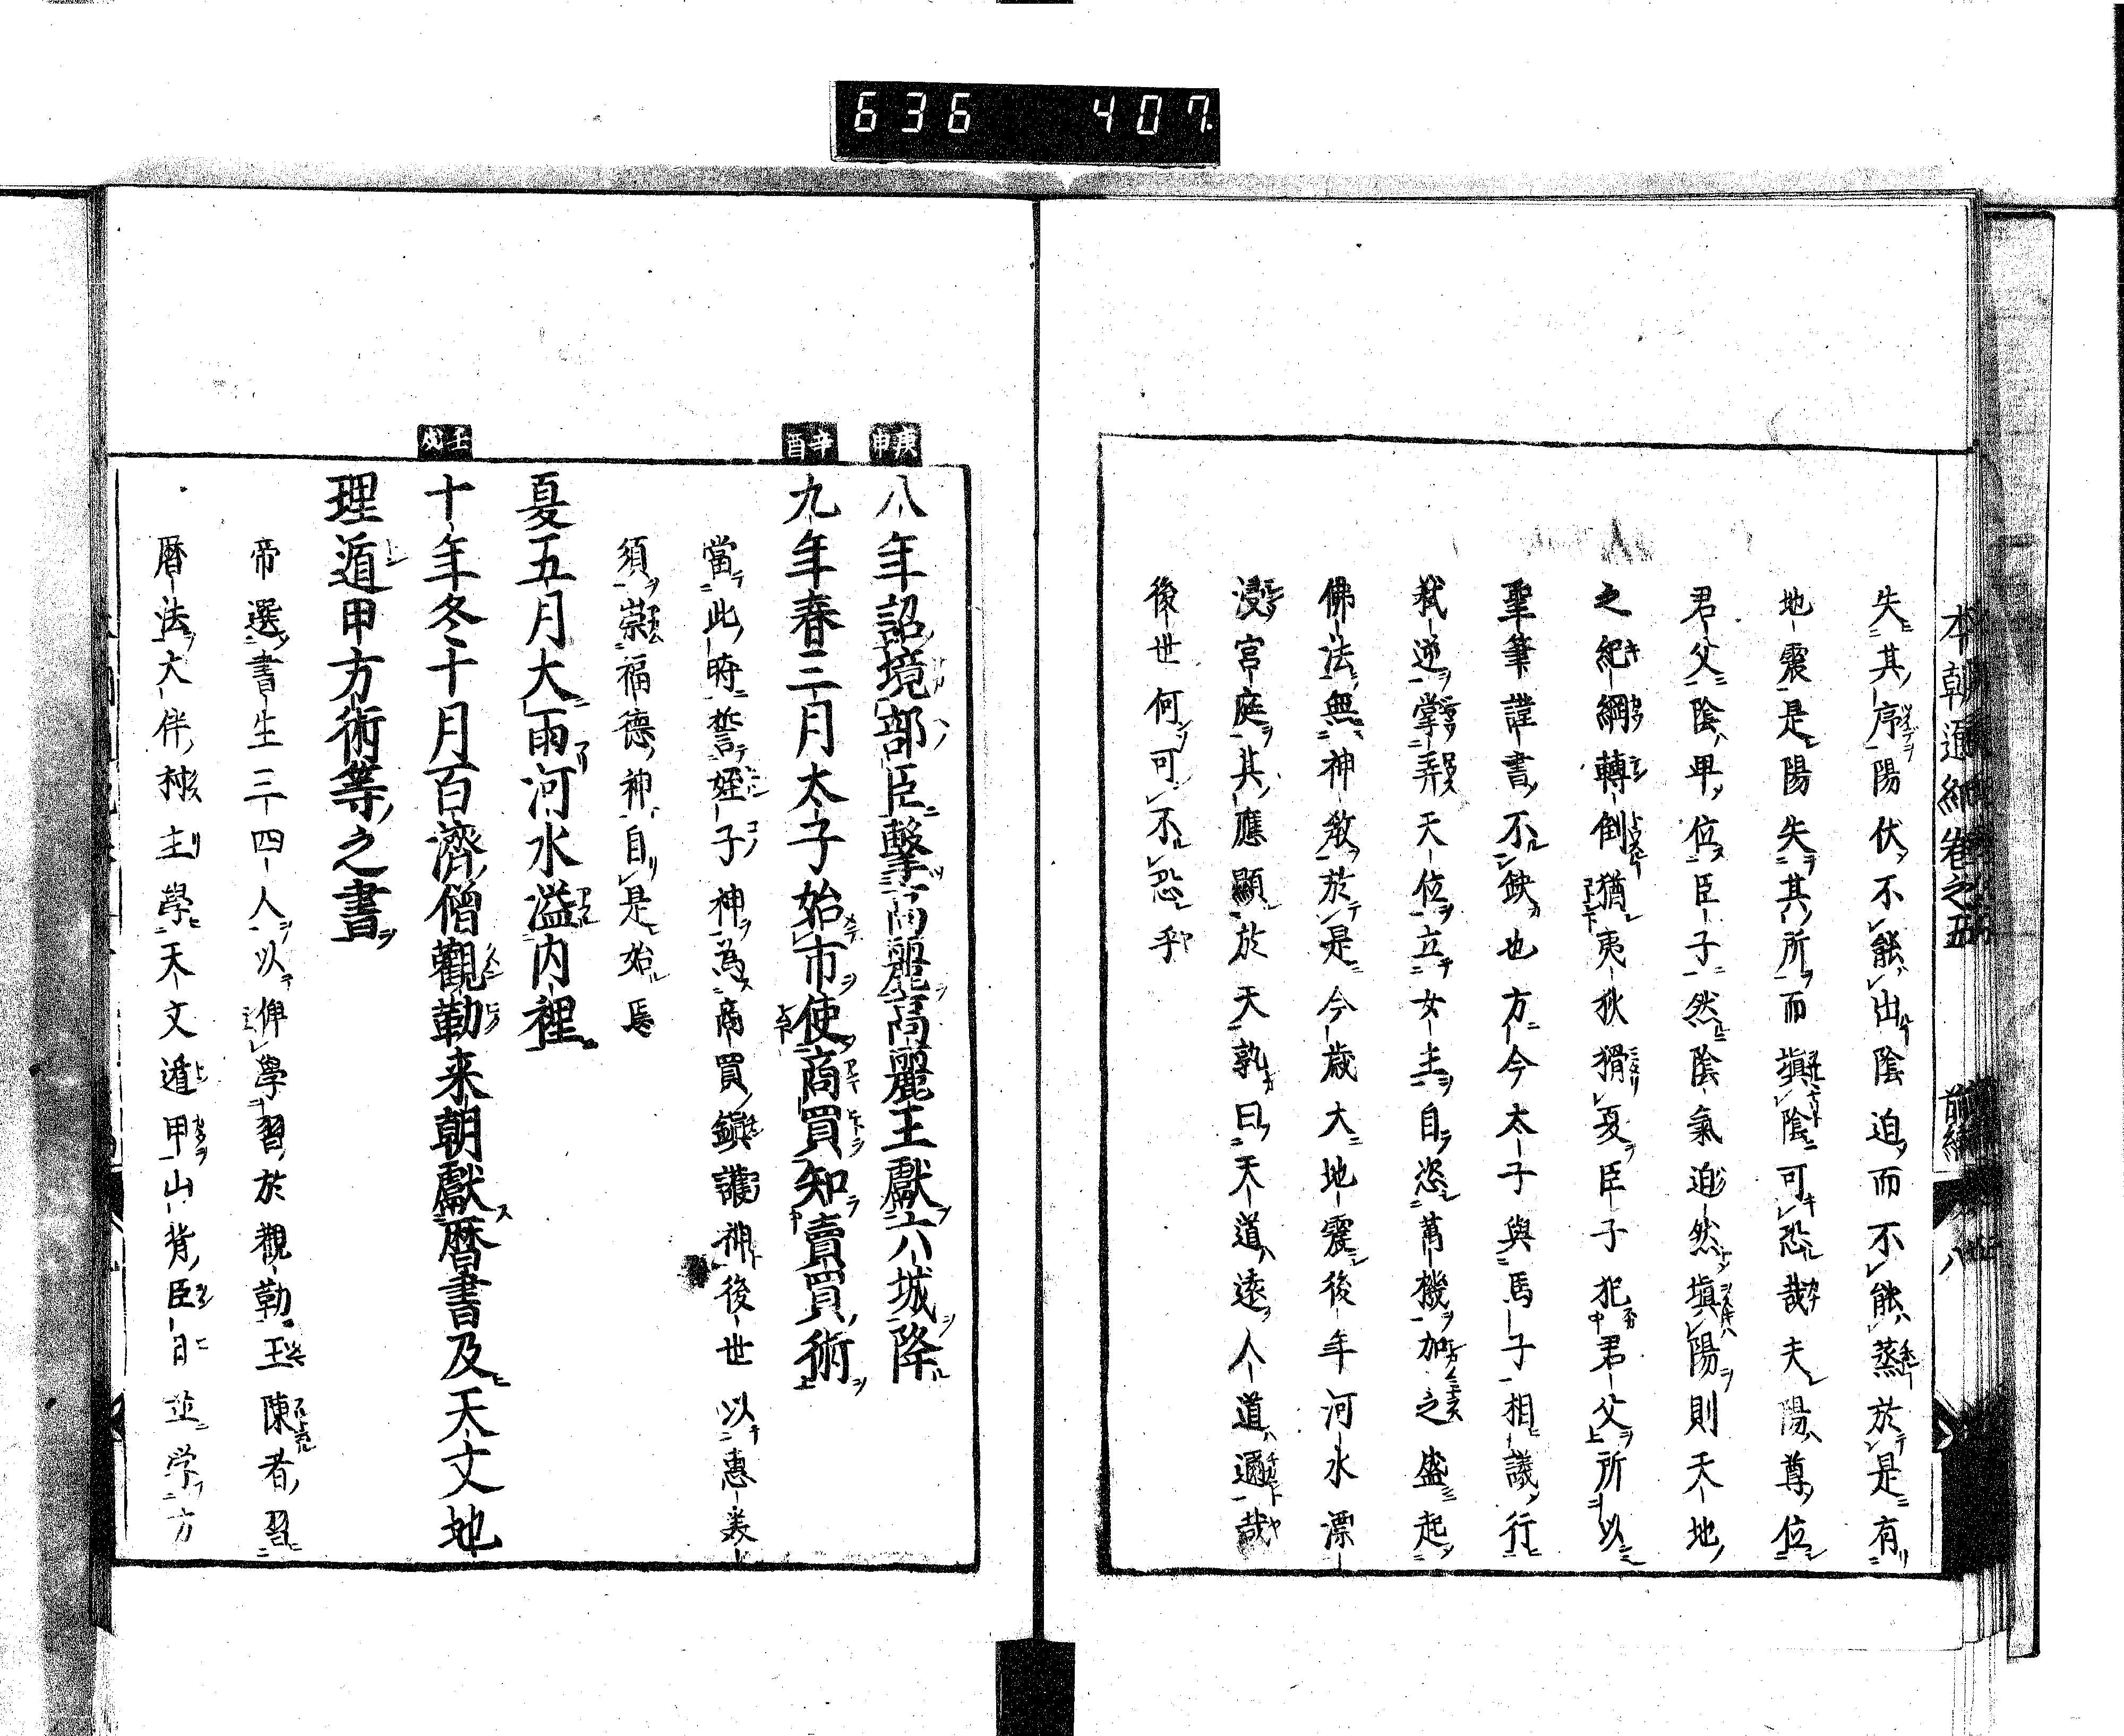 636 407
本朝通紀卷之五 前編 八
失其序陽伏不能出陰迫而不能蒸於是有
地震是陽失其所而塡陰可恐哉夫陽尊位
君父陰卑位臣子然陰氣迫然塡陽則天地
之紀綱轉倒猶夷狄猾夏臣子犯君父所以
聖筆謹書不缺也方今太子與馬子相議行
弑逆掌弄天位立女主自恣萬機加之盛起
佛法無神敎於是今歲大地震後年河水漂
浸宮庭其應顯於天孰曰天道遠人道邇哉
後世何可不恐乎
庚申
八年詔境部臣擊高麗高麗王獻六城降
辛酉
九年春三月太子始市使商買知賣買術
當此時誓蛭子神為商買鎮護神後世以惠美
須崇福德神自是始焉
夏五月大雨河水溢内裡
壬戌
十年冬十月百濟僧觀勒来朝獻曆書及天文地
理遁甲方術等之書
帝選書生三四人以俾學習於觀勒王陳者習
曆法大伴村主學天文遁甲山背臣日並学方